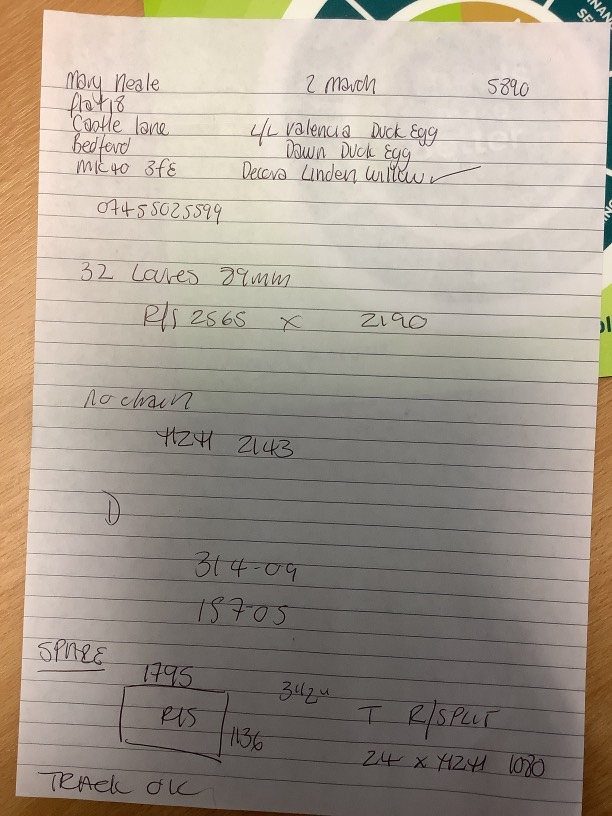 Mary Neale 2 March 5890
flat 18
Castle lane
Bedford
MK40 3fE
L/L Valencia Duck Egg
Dawn Duck Egg
Decora Linden Willow ✓
07455025599
32 Laves 89mm
R/S 2565 x 2190
no chain
HZH 2143
D
314-09
157-05
SPARE
1795
R/S
1136
342u
T R/SPLIT
24 x HZH 1080
TRACK OK